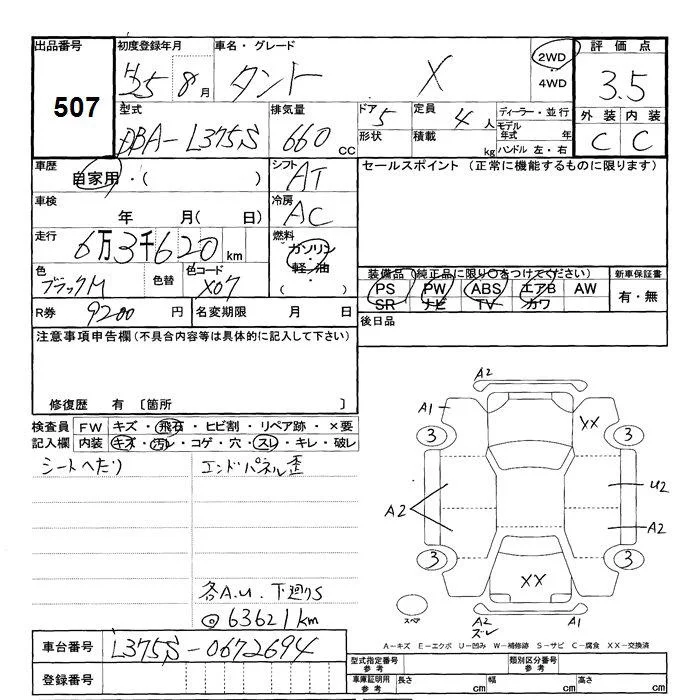 出品番号 初度登録年月 車名・グレード 2WD 評価点
507 H25 8月 タント X 4WD 3.5
型式 排気量 ドア 5 定員 4人 ディーラー・並行 外装 内装
DBA-L375S 660 cc 形状 積載 kg モデル年式 年 C C
ハンドル 左・右
車歴 自家用・( ) シフト AT セールスポイント (正常に機能するものに限ります)
車検 年 月( 日) 冷房 AC
走行 6万3千620km 燃料 ガソリン・軽・油・( )
色 ブラックM 色替 色コード X07 装備品(純正品に限り○をつけてください) 新車保証書
PS PW ABS エアB AW 有・無
SR ナビ TV カワ
R券 9200円 名変期限 月 日 後日品
注意事項申告欄(不具合内容等は具体的に記入して下さい)
修復歴 有 〔箇所 〕
検査員 FW キズ・飛石・ヒビ割・リペア跡・×要
記入欄 内装 キズ・汚レ・コゲ・穴・スレ・キレ・破レ
シートへたり エンドパネル歪
各A.U. 下廻りS
◎63621km
A2
A1 XX
3 3
A2 U2
A2
3 3
XX
スペア A2 A1
ズレ
A-キズ E-エクボ U-凹み W-補修跡 S-サビ C-腐食 XX-交換済
車台番号 L375S-0672694 型式指定番号 参考 類別区分番号 参考
登録番号 車庫証明用 参考 長さ cm 幅 cm 高さ cm